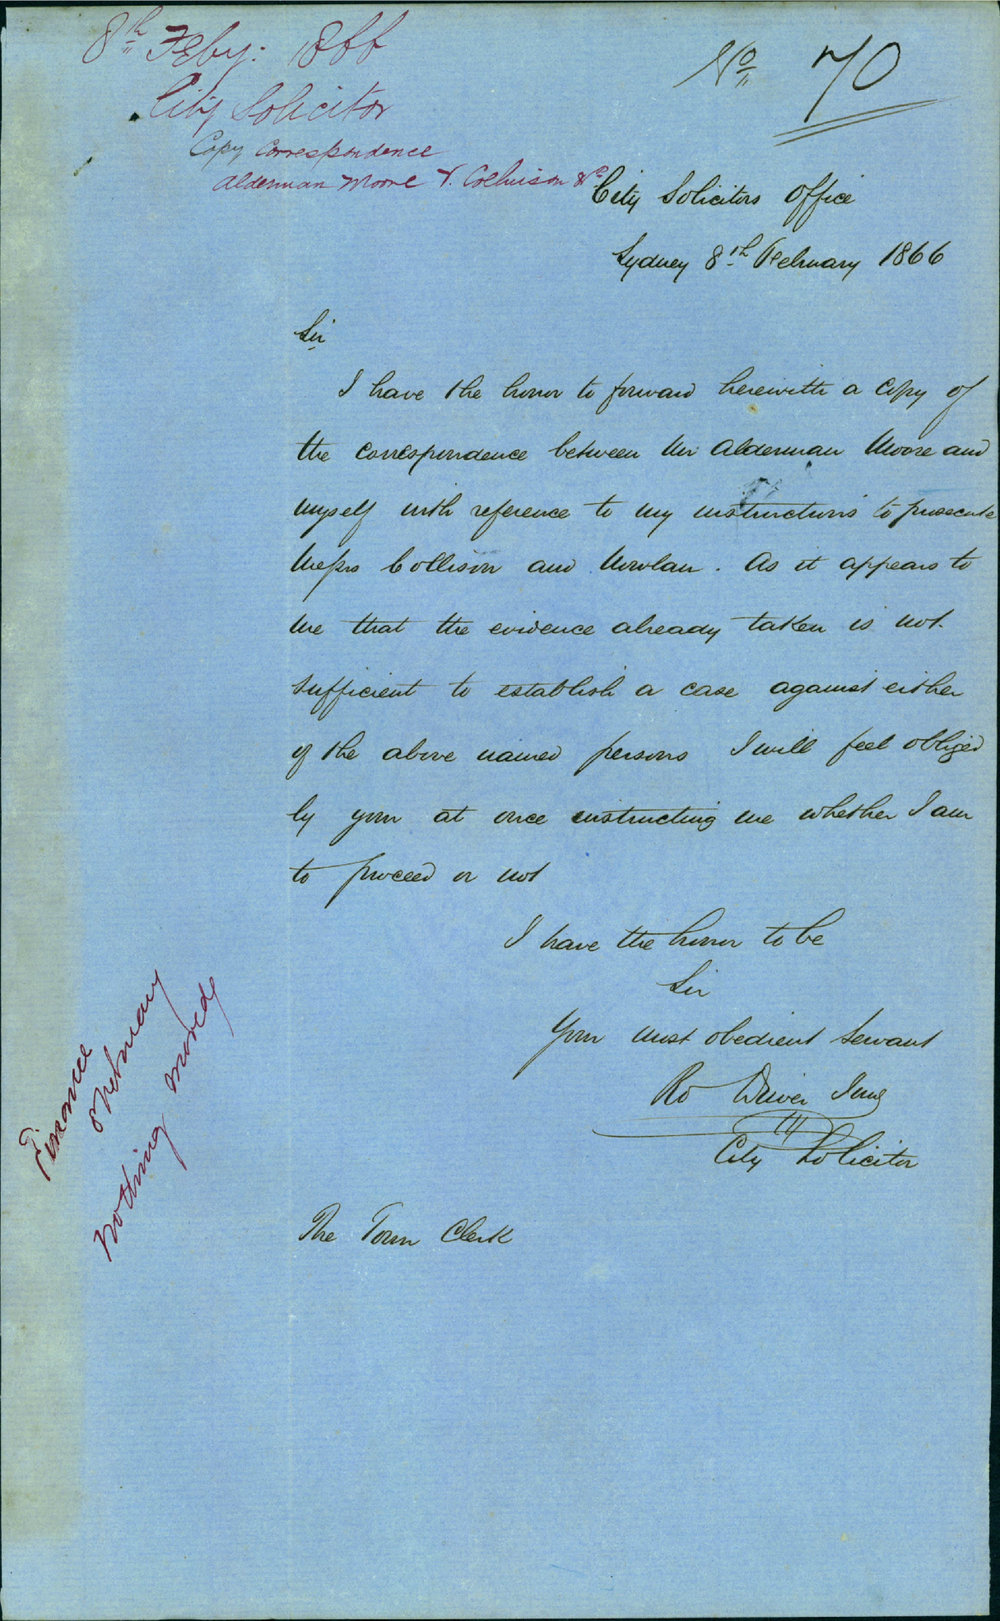 8th Feby: 1866
City Solicitor
Copy Correspondence
Alderman Moore v. Collison &c
No 70
City Solicitors Office
Sydney 8th February 1866
Sir
I have the honor to forward herewith a copy of
the correspondence between Mr Alderman Moore and
myself with reference to my instructions to prosecute
Messrs Collison and Nowlan. As it appears to
me that the evidence already taken is not
sufficient to establish a case against either
of the above named persons I will feel obliged
by your at once instructing me whether I am
to proceed or not
I have the honor to be
Sir
Your most obedient Servant
Rd Driver Junr
City Solicitor
The Town Clerk
Finance
February
Nothing moved